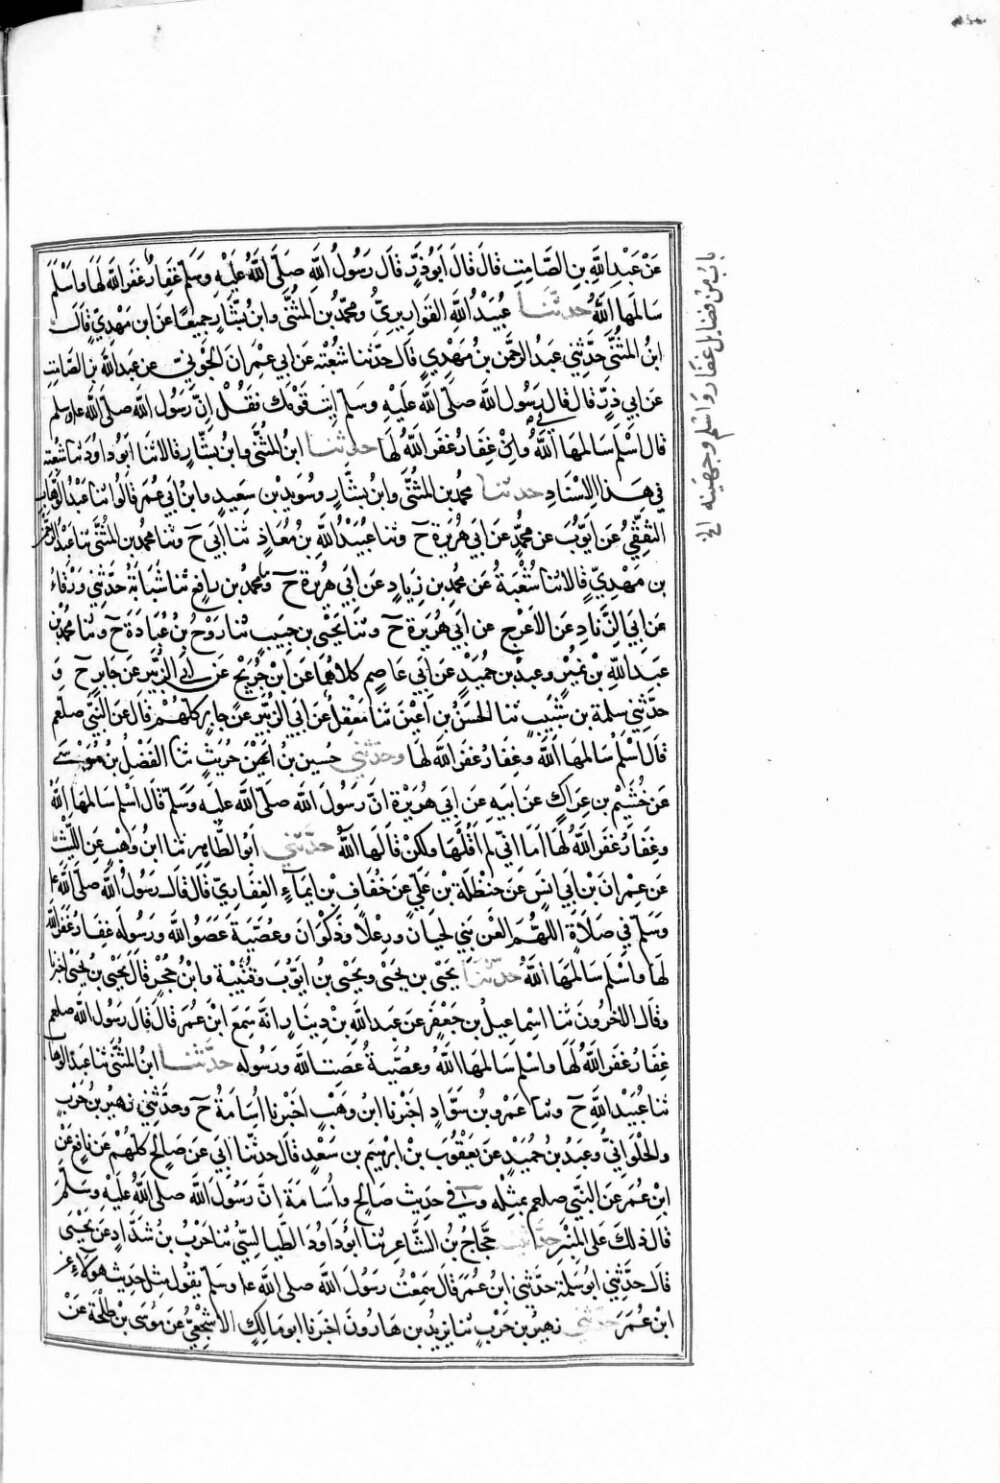 عَنْ عَبْدِ اللَّهِ بْنِ الصَّامِتِ قَالَ قَالَ أَبُو ذَرٍّ قَالَ رَسُولُ اللَّهِ صَلَّى اللَّهُ عَلَيْهِ وَسَلَّمَ غِفَارُ غَفَرَ اللَّهُ لَهَا وَاَسْلَمُ
سَالَمَهَا اللَّهُ حدثنا عُبَيْدُ اللَّهِ القَوَارِيرِيُّ ومُحَمَّدُ بْنُ المُثَنَّى وابْنُ بَشَّارٍ جَمِيعًا عَنِ ابْنِ مَهْدِيٍّ قَالَ
ابْنُ المُثَنَّى حَدَّثَنِي عَبْدُ الرَّحْمَنِ بْنُ مَهْدِيٍّ قَالَ حَدَّثَنَا شُعْبَةُ عَنْ أَبِي عِمْرَانَ الجَوْنِيِّ عن عبد الله بن الصَّامِتِ
عَنْ أَبِي ذَرٍّ قَالَ قَالَ لِي رَسُولُ اللَّهِ صَلَّى اللَّهُ عَلَيْهِ وَسَلَّمَ ايتِ قَوْمَكَ فَقُلْ إِنَّ رَسُولَ اللَّهِ صلى الله عله وسلم
قَالَ اَسْلَمُ سَالَمَهَا اللَّهُ وغِفَارُ غَفَرَ اللَّهُ لَهَا حدثنا ابْنُ المُثَنَّى وابْنُ بَشَّارٍ قَالَا ثنا أَبُو دَاوُدَ ثنا شُعْبَة
فِي هَذَا الإِسْنَادِ حدثنا محمد بن المُثَنَّى وابْنُ بَشَّارٍ وسُوَيْدُ بْنُ سَعِيدٍ وابْنُ أَبِي عُمَرَ قَالُوا ثنا عَبْدُ الوَهَّابِ
الثَّقَفِيُّ عَنْ أَيُّوبَ عَنْ مُحَمَّدٍ عَنْ أَبِي هُرَيْرَةَ ح وثنا عُبَيْدُ اللَّهِ بْنُ مُعَاذٍ ثنا أَبِي ح وثنا محمد بن المُثَنَّى ثنا عَبْدُ الرحمن
بن مَهْدِيٍّ قَالَا ثنا شُعْبَةُ عَنْ محمد بن زِيَادٍ عَنْ أَبِي هُرَيْرَةَ ح ومحمد بن رَافِعٍ ثنا شَبَابَةُ حَدَّثَنِي وَرْقَاءُ
عَنْ أَبِي الزِّنَادِ عَنِ الأَعْرَجِ عن أَبِي هُرَيْرَةَ ح وثنا يَحْيَى بْنُ حَبِيبٍ ثنا رَوْحُ بْنُ عُبَادَةَ ح وثنا مُحَمَّدُ بْنُ
عَبْدِ اللَّهِ بْنِ نُمَيْرٍ وعَبْدُ بْنُ حُمَيْدٍ عَنْ أَبِي عَاصِمٍ كِلَاهُمَا عَنِ ابْنِ جُرَيْجٍ عَنْ أَبِي الزُّبَيْرِ عَنْ جَابِرٍ ح وَ
حَدَّثَنِي سَلَمَةُ بْنُ شَبِيبٍ ثنا الحَسَنُ بْنُ أَعْيَنَ ثنا مَعْقِلٌ عَنْ أَبِي الزُّبَيْرِ عَنْ جَابِرٍ كُلُّهُمْ قَالَ عَنِ النَّبِيِّ صلعم
قَالَ أَسْلَمُ سَالَمَهَا اللَّهُ وغِفَارُ غَفَرَ اللَّهُ لَهَا وحدثني حُسَيْن بْنُ حُرَيْثٍ ثنا الفَضْلُ بْنُ مُوسَى
عَنْ خُثَيْمِ بْنِ عِرَاكٍ عَنْ أَبِيهِ عَنْ أَبِي هُرَيْرَةَ أَنَّ رَسُولَ اللَّهِ صَلَّى اللَّهُ عَلَيْهِ وَسَلَّمَ قَالَ أَسْلَمُ سَالَمَهَا اللَّهُ
وغِفَارُ غَفَرَ اللَّهُ لَهَا أَمَا إِنِّي لَمْ أَقُلْهَا ولَكِنْ قَالَهَا اللَّهُ حدثني أَبُو الطَّاهِرِ ثنا ابْنُ وَهْبٍ عَنِ اللَّيْثِ
عَنْ عِمْرَانَ بْنِ أَبِي أَنَسٍ عَنْ حَنْظَلَةَ بْنِ عَلِيٍّ عَنْ خُفَافِ بْنِ إِيمَاءٍ الغِفَارِيِّ قَالَ قَالَ رَسُولُ اللَّهِ صَلَّى اللَّهُ عله
وَسَلَّمَ فِي صَلَاةٍ اللَّهُمَّ الْعَنْ بَنِي لِحْيَانَ ورِعْلًا وذَكْوَانَ وعُصَيَّةَ عَصَوُا اللَّهَ ورَسُولَهُ غِفَارُ غَفَرَ اللَّهُ
لَهَا وأَسْلَمُ سَالَمَهَا اللَّهُ حدثنا يَحْيَى بْنُ يَحْيَى ويَحْيَى بْنُ أَيُّوبَ وقُتَيْبَةُ وابْنُ حُجْرٍ قَالَ يَحْيَى بْنُ يَحْيَى اخبرنا
وقَالَ الآخَرُونَ ثنا إِسْمَاعِيلُ بْنُ جَعْفَرٍ عَنْ عَبْدِ اللَّهِ بْنِ دِينَارٍ أَنَّهُ سَمِعَ ابْنَ عُمَرَ قَالَ قَالَ رَسُولُ اللَّهِ صلعم
غِفَارُ غَفَرَ اللَّهُ لَهَا وأَسْلَمُ سَالَمَهَا اللَّهُ وعُصَيَّةُ عَصَتِ اللَّهَ ورَسُولَهُ حدثنا ابْنُ المُثَنَّى ثنا عَبْدُ الوهاب
ثنا عُبَيْدُ اللَّهِ ح وثنا عَمْرُو بْنُ سَوَّادٍ أَخْبَرَنَا ابْنُ وَهْبٍ أَخْبَرَنَا أُسَامَةُ ح وحَدَّثَنِي زُهَيْرُ بْنُ حَرْبٍ
والحُلْوَانِيُّ وعَبْدُ بْنُ حُمَيْدٍ عَنْ يَعْقُوبَ بْنِ إِبْرَهِيمَ بْنِ سَعْدٍ قَالَ حَدَّثَنَا أَبِي عَنْ صَالِحٍ كُلُّهُمْ عَنْ نَافِعٍ عَنِ
ابْنِ عُمَرَ عَنِ النَّبِيِّ صلعم بِمِثْلِهِ وفي حَدِيثِ صَالِحٍ وأُسَامَةَ أَنَّ رَسُولَ اللَّهِ صَلَّى اللَّهُ عَلَيْهِ وَسَلَّمَ
قَالَ ذَلِكَ عَلَى المِنْبَرِ حدثني حَجَّاجُ بْنُ الشَّاعِرِ ثنا أَبُو دَاوُدَ الطَّيَالِسِيُّ ثنا حَرْبُ بْنُ شَدَّادٍ عَنْ يَحْيَى
قَالَ حَدَّثَنِي أَبُو سَلَمَةَ حَدَّثَنِي ابْنُ عُمَرَ قَالَ سَمِعْتُ رَسُولَ اللَّهِ صلى الله عله وسلم يَقُولُ مِثْلَ حَدِيثِ هَؤُلَاءِ عن
ابْنِ عُمَرَ حدثني زُهَيْرُ بْنُ حَرْبٍ ثنا يَزِيدُ بْنُ هَارُونَ أَخْبَرَنَا أَبُو مَالِكٍ الأَشْجَعِيُّ عَنْ مُوسَى بْنِ طَلْحَةَ عَنْ
باب من فضايل غفار واسلم وجهينه الخ